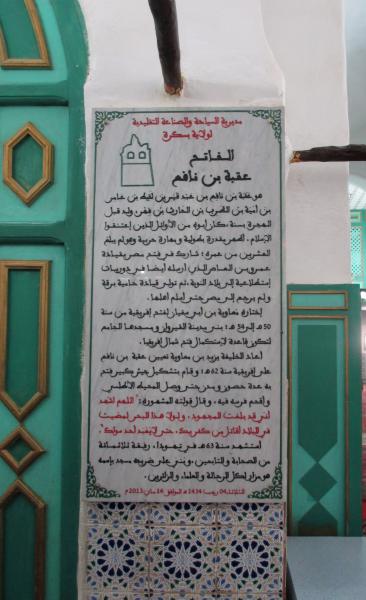 مديرية السياحة والصناعة التقليدية
لولاية بسكرة
الفاتح
عقبة بن نافع
هو عقبة بن نافع بن عبد قيس بن لقيط بن عامر
بن أمية بن الضرب بن الحارث بن فهر، ولد قبل
الهجرة بسنة، كان أبوه من الأوائل الذين اعتنقوا
الإسلام، أظهر بقدرة بطولية ومهارة حربية وهو لم يبلغ
العشرين من عمره، شارك في فتح مصر بقيادة
عمرو بن العاص الذي أرسله أيضا في دوريات
إستطلاعية إلى بلاد النوبة، ثم تولى قيادة حامية برقة
ولم يرجع إلى مصر حتى أسلم أهلها.
إختاره معاوية بن أبي سفيان لفتح إفريقية من سنة
50هـ إلى 55هـ، بنى مدينة القيروان ومسجدها الجامع
لتكون قاعدة لإستكمال فتح شمال إفريقيا.
أعاد الخليفة يزيد بن معاوية تعيين عقبة بن نافع
على إفريقية سنة 62هـ، وقام بتشكيل جيش كبير فتح
به عدة حصون ومدن حتى وصل المحيط الأطلسي
وأقحم فرسه فيه، وقال قولته المشهورة: "اللهم اشهد
أني قد بلغت المجهود، ولولا هذا البحر لمضيت
في البلاد أقاتل من كفر بك، حتى لا يعبد أحد سواك"
أستشهد سنة 63هـ في تهودة، رفقة ثلاثمائة
من الصحابة والتابعين، وبني على ضريحه مسجد بإسمه
هو مزار لكل الرحالة والعلماء والزائرين.
الثلاثاء 04 رجب 1434هـ الموافق 14 ماي 2013م